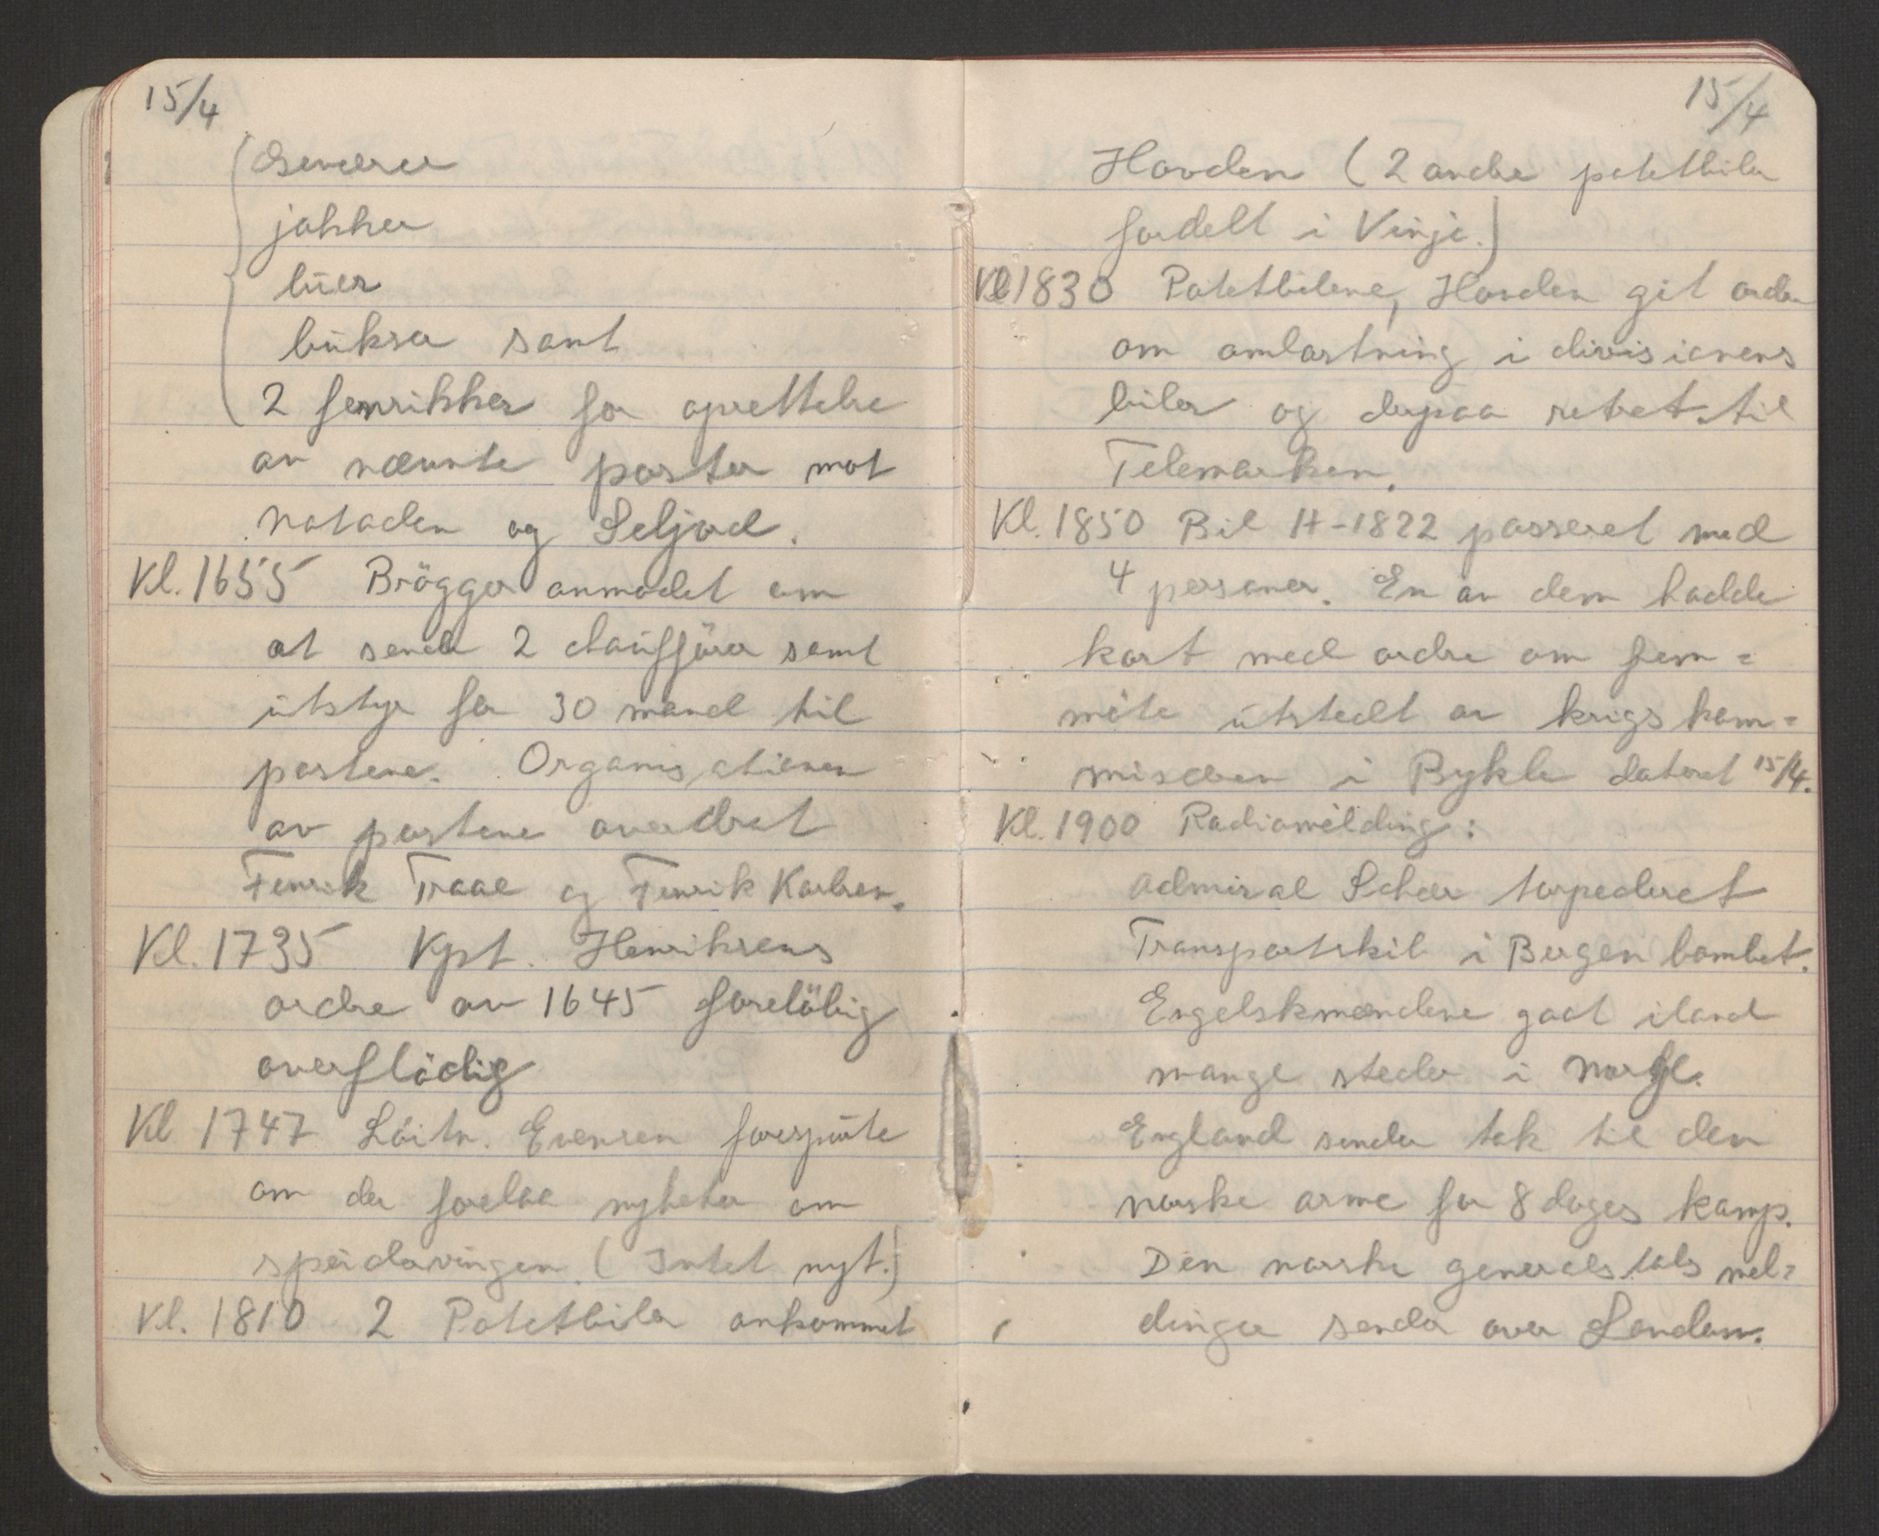 15/4
Geværer
jakker
lüer
bükser samt
2 fenrikker for oprettelse
av nævnte poster mot
Notoden og Seljord.
Kl. 1655 Brögger anmodet om
at sende 2 chaüfförer samt
ütstyr for 30 mand til
postene. Organisationen
av postene overdrat
Fenrik Traae og Fenrik Karlsen.
Kl. 1735 Kpt. Henriksens
ordre av 1645 forelöbig
overflödig
Kl 1747 Löitn. Evensen forespürte
om der forelaa nyheter om
speidervingen. (Intet nyt.)
Kl. 1810 2 Potetbiler ankommet
15/4
Hovden (2 andre potetbiler
fordelt i Vinje.)
Kl 1830 Potetbilene, Hovden git ordre
om omlastning i divisionens
biler og derpaa retret til
Telemarken.
Kl. 1850 Bil H-1822 passeret med
4 personer. En av dem hadde
kort med ordre om frem=
möte ütstedt av krigskom=
missæren i Bykle datert 15/4.
Kl. 1900 Radiomelding:
Admiral Scheer torpederet
Transportskib i Bergen bombet.
Engelskmændene gaat iland
mange steder i Norge.
England sender tak til den
norske arme for 8 dages kamp.
Den norske generalstabs mel=
dinger sendes over London.